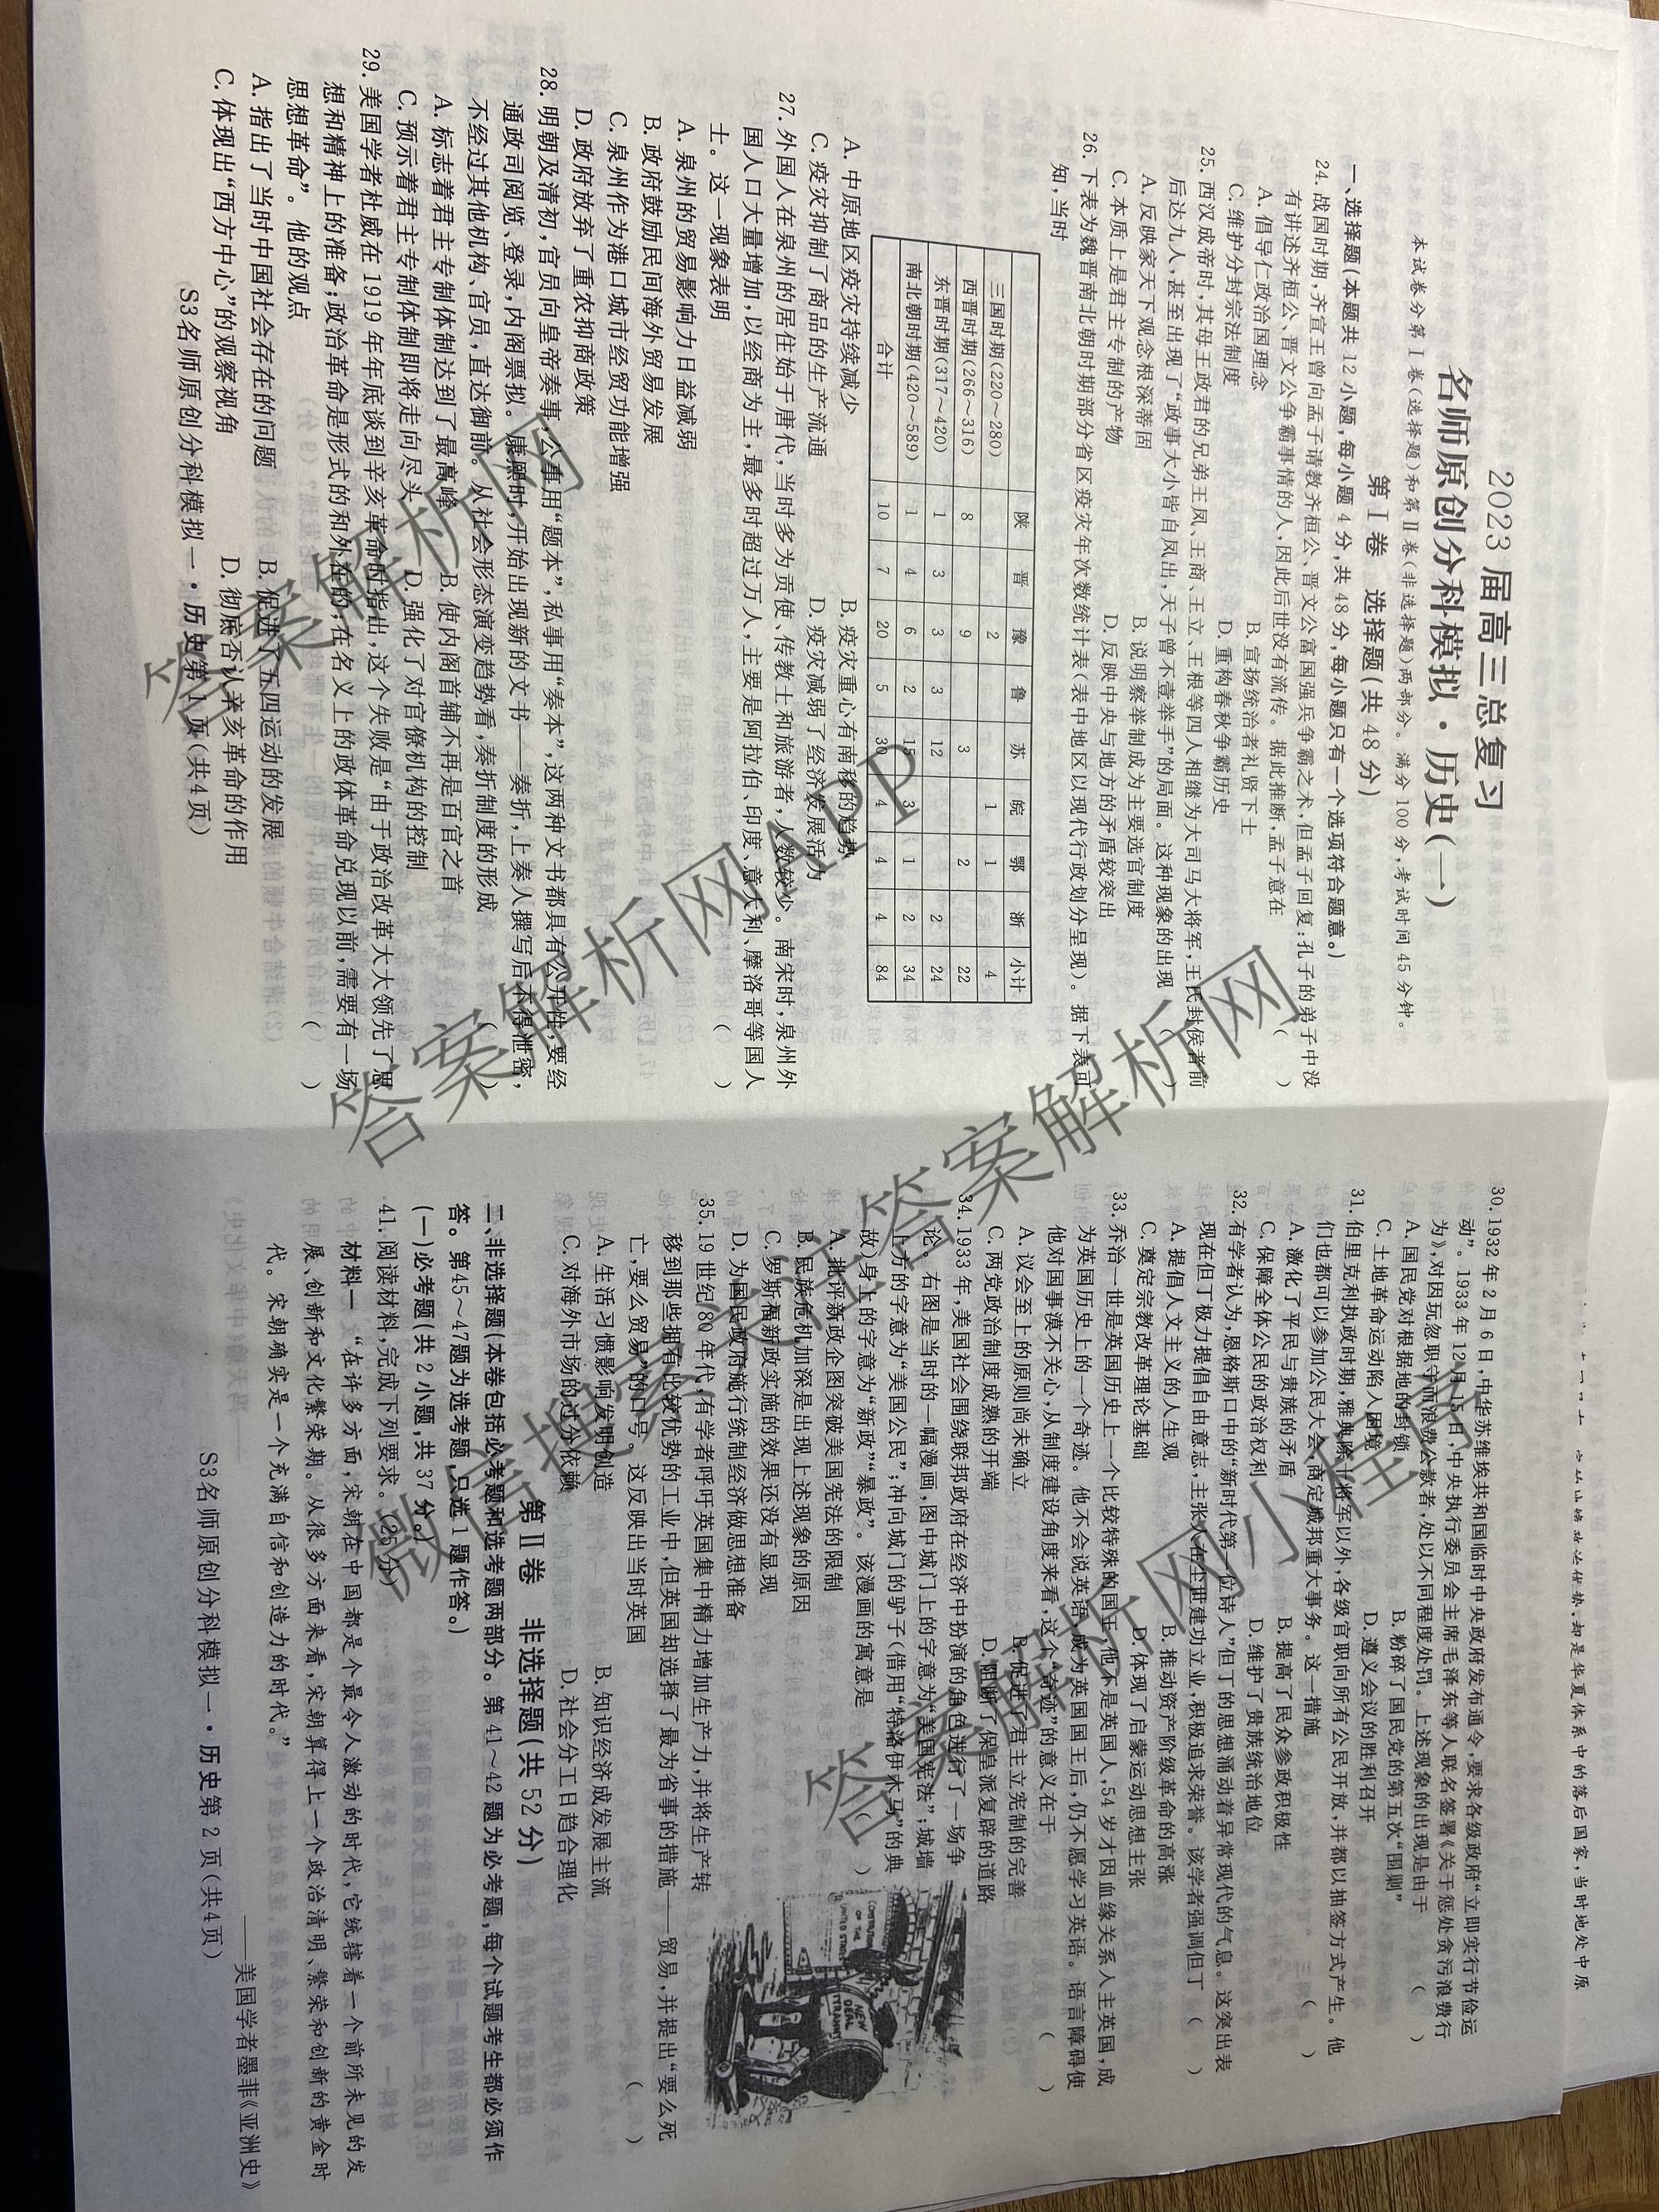 2023届高三总复习
名师原创分科模拟·历史(一)
本试卷分第Ⅰ卷(选择题)和第Ⅱ卷(非选择题)两部分。满分100分,考试时间45分钟。
第Ⅰ卷 选择题(共48分)
一、选择题(本题共12小题,每小题4分,共48分,每小题只有一个选项符合题意。)
24.战国时期,齐宣王曾向孟子请教齐桓公、晋文公富国强兵争霸之术,但孟子回复:孔子的弟子中没
有讲述齐桓公、晋文公争霸事情的人,因此后世没有流传。据此推断,孟子意在 ( )
A.倡导仁政治国理念 B.宣扬统治者礼贤下士
C.维护分封宗法制度 D.重构春秋争霸历史
25.西汉成帝时,其母王政君的兄弟王凤、王商、王立、王根等四人相继为大司马大将军,王氏封侯者前
后达九人,甚至出现了“政事大小皆自凤出,天子曾不壹举手”的局面。这种现象的出现 ( )
A.反映家天下观念根深蒂固 B.说明察举制成为主要选官制度
C.本质上是君主专制的产物 D.反映中央与地方的矛盾较突出
26.下表为魏晋南北朝时期部分省区疫灾年次数统计表(表中地区以现代行政划分呈现)。据下表可
知,当时 ( )
陕 晋 豫 鲁 苏 皖 鄂 浙 小计
三国时期(220~280) 2 1 1 4
西晋时期(266~316) 8 9 3 2 22
东晋时期(317~420) 1 3 3 3 12 2 24
南北朝时期(420~589) 1 4 6 2 15 3 1 2 34
合计 10 7 20 5 30 4 4 4 84
A.中原地区疫灾持续减少 B.疫灾重心有南移的趋势
C.疫灾抑制了商品的生产流通 D.疫灾减弱了经济发展活力
27.外国人在泉州的居住始于唐代,当时多为贡使、传教士和旅游者,人数较少。南宋时,泉州外
国人口大量增加,以经商为主,最多时超过万人,主要是阿拉伯、印度、意大利、摩洛哥等国人
士。这一现象表明 ( )
A.泉州的贸易影响力日益减弱
B.政府鼓励民间海外贸易发展
C.泉州作为港口城市经贸功能增强
D.政府放弃了重农抑商政策
28.明朝及清初,官员向皇帝奏事,公事用“题本”,私事用“奏本”,这两种文书都具有公开性,要经
通政司阅览、登录,内阁票拟。康熙时,开始出现新的文书——奏折,上奏人撰写后不得泄密,
不经过其他机构、官员,直达御前。从社会形态演变趋势看,奏折制度的形成 ( )
A.标志着君主专制体制达到了最高峰 B.使内阁首辅不再是百官之首
C.预示着君主专制体制即将走向尽头 D.强化了对官僚机构的控制
29.美国学者杜威在1919年年底谈到辛亥革命时指出,这个失败是“由于政治改革大大领先了思
想和精神上的准备;政治革命是形式的和外在的;在名义上的政体革命兑现以前,需要有一场
思想革命”。他的观点 ( )
A.指出了当时中国社会存在的问题 B.促进了五四运动的发展
C.体现出“西方中心”的观察视角 D.彻底否认辛亥革命的作用
S3名师原创分科模拟一·历史第1页(共4页)
30.1932年2月6日,中华苏维埃共和国临时中央政府发布通令,要求各级政府“立即实行节俭运
动”。1933年12月15日,中央执行委员会主席毛泽东等人联名签署《关于惩处贪污浪费行
为》,对因玩忽职守而浪费公款者,处以不同程度处罚。上述现象的出现是由于 ( )
A.国民党对根据地的封锁 B.粉碎了国民党的第五次“围剿”
C.土地革命运动陷入困境 D.遵义会议的胜利召开
31.伯里克利执政时期,雅典除十将军以外,各级官职向所有公民开放,并都以抽签方式产生。他
们也都可以参加公民大会,商定城邦重大事务。这一措施 ( )
A.激化了平民与贵族的矛盾 B.提高了民众参政积极性
C.保障全体公民的政治权利 D.维护了贵族统治地位
32.有学者认为,恩格斯口中的“新时代第一位诗人”但丁的思想涌动着异常现代的气息。这突出表
现在但丁极力提倡自由意志,主张人在尘世建功立业,积极追求荣誉。该学者强调但丁 ( )
A.提倡人文主义的人生观 B.推动资产阶级革命的高涨
C.奠定宗教改革理论基础 D.体现了启蒙运动思想主张
33.乔治一世是英国历史上一个比较特殊的国王,他不是英国人,54岁才因血缘关系入主英国,成
为英国历史上的一个奇迹。他不会说英语,成为英国国王后,仍不愿学习英语。语言障碍使
他对国事漠不关心,从制度建设角度来看,这个“奇迹”的意义在于 ( )
A.议会至上的原则尚未确立 B.促进了君主立宪制的完善
C.两党政治制度成熟的开端 D.阻断了保皇派复辟的道路
34.1933年,美国社会围绕联邦政府在经济中扮演的角色进行了一场争
论。右图是当时的一幅漫画,图中城门上的字意为“美国宪法”;城墙
上方的字意为“美国公民”;冲向城门的驴子(借用“特洛伊木马”的典
故)身上的字意为“新政”“暴政”。该漫画的寓意是 ( )
A.批评新政企图突破美国宪法的限制
B.民族危机加深是出现上述现象的原因
C.罗斯福新政实施的效果还没有显现
D.为国民政府施行统制经济做思想准备
CONSTITUTION
OF THE
UNITED STATES
NEW
DEAL
TYRANNY
35.19世纪80年代,有学者呼吁英国集中精力增加生产力,并将生产转
移到那些拥有比较优势的工业中,但英国却选择了最为省事的措施——贸易,并提出“要么死
亡,要么贸易”的口号。这反映出当时英国 ( )
A.生活习惯影响发明创造 B.知识经济成发展主流
C.对海外市场的过分依赖 D.社会分工日趋合理化
第Ⅱ卷 非选择题(共52分)
二、非选择题(本卷包括必考题和选考题两部分。第41~42题为必考题,每个试题考生都必须作
答。第45~47题为选考题,只选1题作答。)
(一)必考题(共2小题,共37分。)
41.阅读材料,完成下列要求。(25分)
材料一 “在许多方面,宋朝在中国都是个最令人激动的时代,它统辖着一个前所未见的发
展、创新和文化繁荣期。从很多方面来看,宋朝算得上一个政治清明、繁荣和创新的黄金时
代。宋朝确实是一个充满自信和创造力的时代。”
——美国学者墨菲《亚洲史》
S3名师原创分科模拟一·历史第2页(共4页)
华夏体系中的落后国家,当时地处中原
答案解析网
答案解析网APP
答案解析网
答案解析网